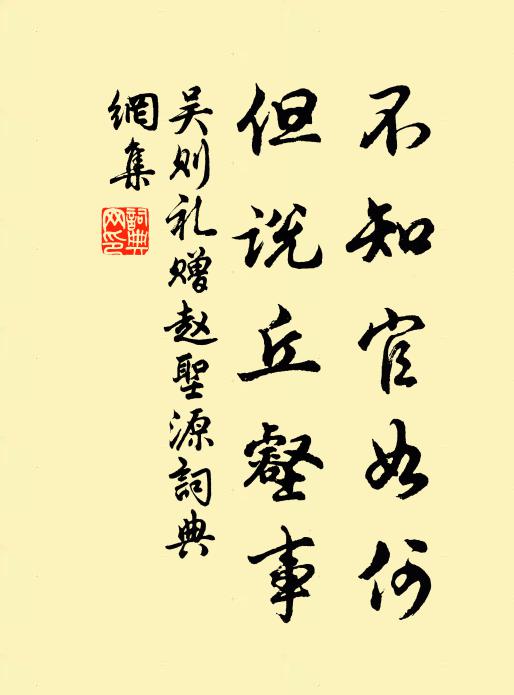 不知官如何
但说丘壑事
吴则礼赠赵聖源詞典
網集
詞典
网印